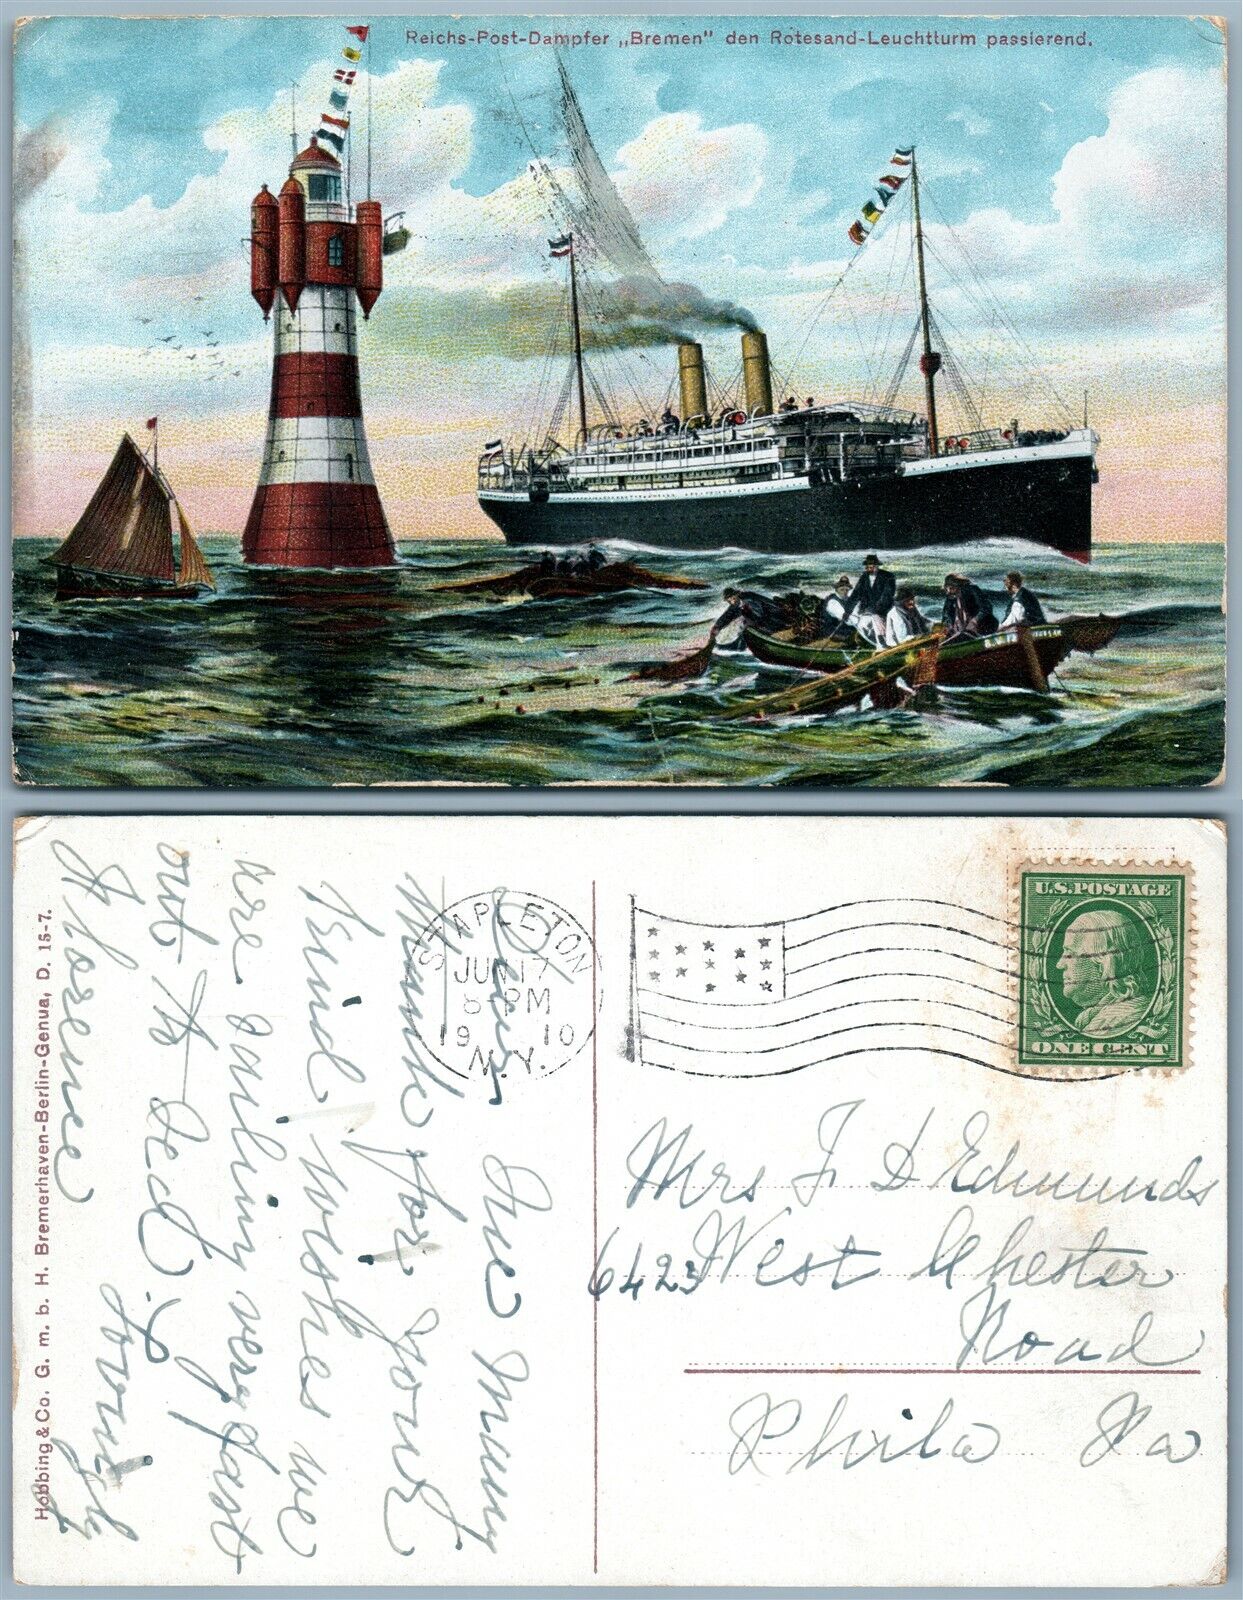 Reichs-Post-Dampfer „Bremen" den Rotesand-Leuchtturm passierend.
Hobbing & Co. G. m. b. H. Bremerhaven-Berlin-Genua, D. 15-7.
many
thanks for your
kind wishes we
are sailing very fast
out to sea.
Lovingly
Florence
STAPLETON
JUN 17
8 PM
1910
N.Y.
U.S. POSTAGE
ONE CENT
Mrs F D Edmunds
6423 West Chester
Road
Phila Pa